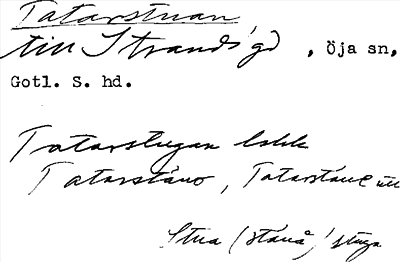 Tatarstuan
till Strands gd, Öja sn,
Gotl. S. hd.
Tatarstugan
Tatarstäno, Tatarstäne
Stua (stäuå) 'stuga